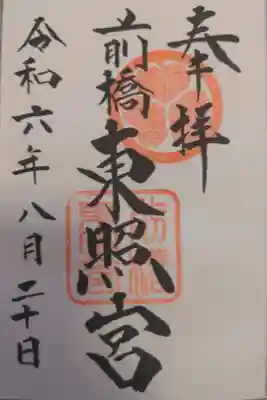 奉拝
前橋東照宮
令和六年八月二十日